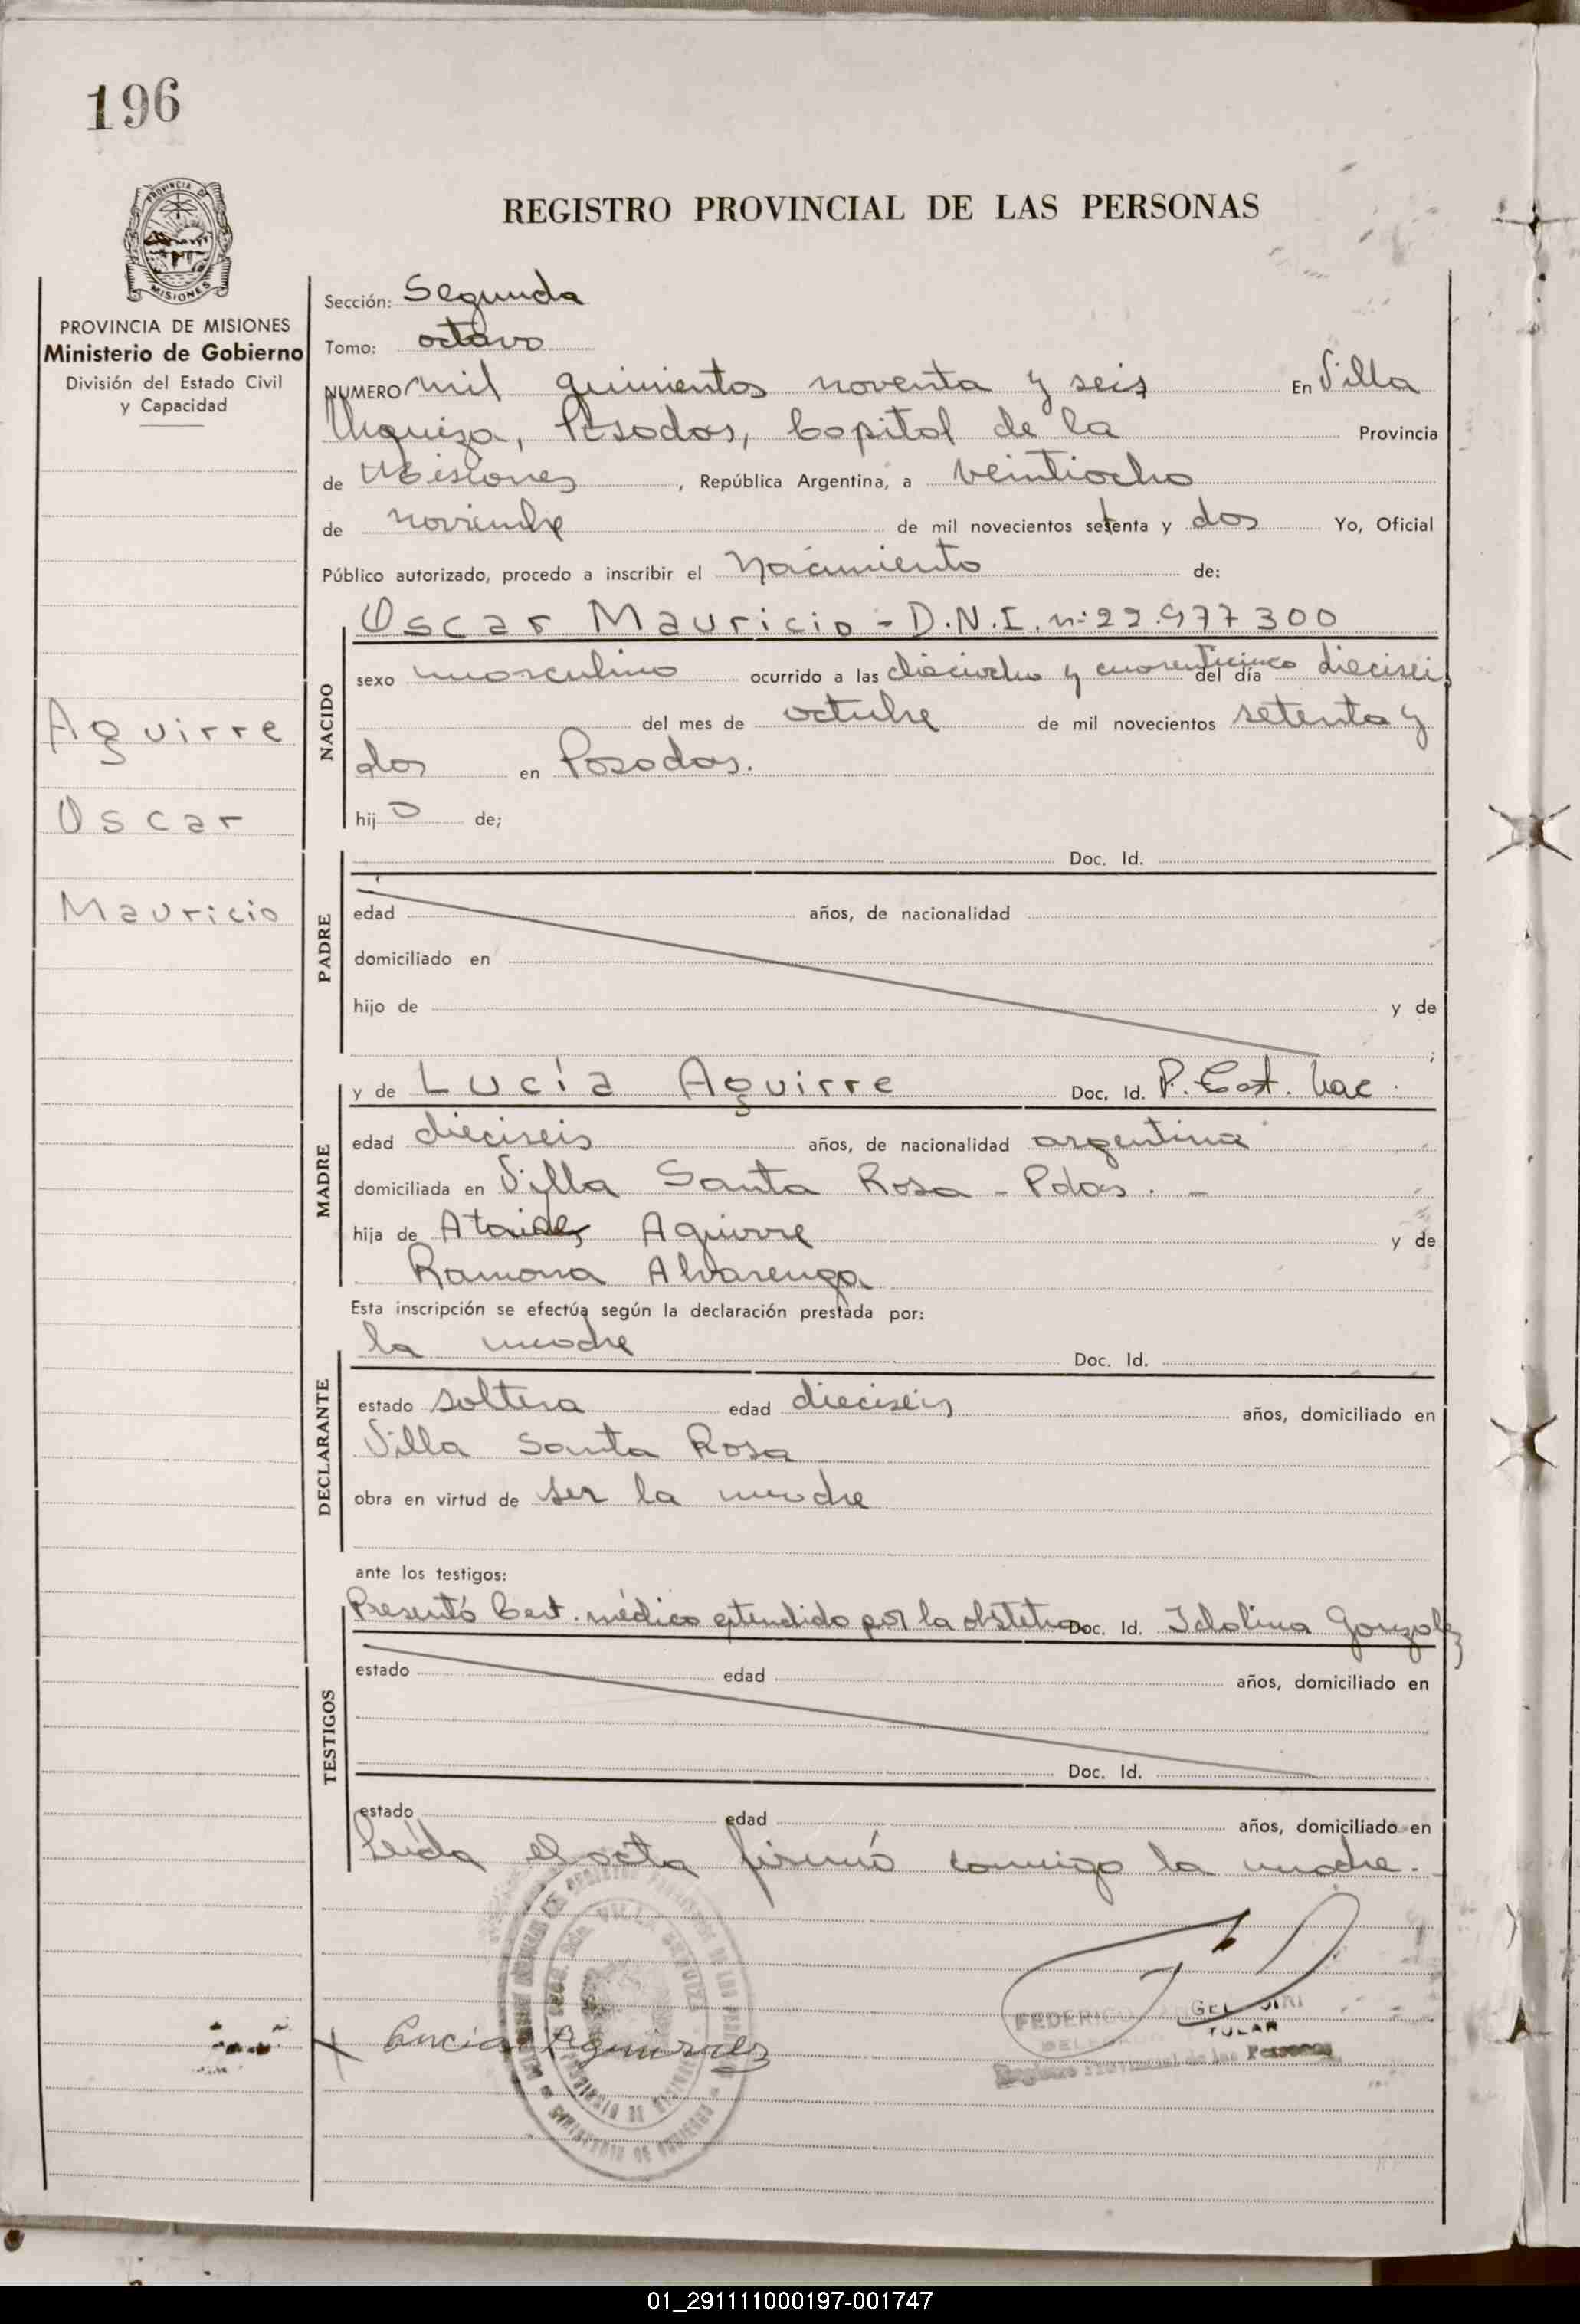 196
PROVINCIA DE
MISIONES
REGISTRO PROVINCIAL DE LAS PERSONAS
PROVINCIA DE MISIONES
Ministerio de Gobierno
División del Estado Civil
y Capacidad
Sección: Segunda
Tomo: octavo
NUMERO mil quinientos noventa y seis En Villa
Urquiza, Posadas, Capital de la Provincia
de Misiones, República Argentina, a veintiocho
de noviembre de mil novecientos setenta y dos Yo, Oficial
Público autorizado, procedo a inscribir el Nacimiento de:
Oscar Mauricio - D.N.I. nº 22.977300
NACIDO
sexo masculino ocurrido a las dieciocho y cuarenticinco del día dieciseis
del mes de octubre de mil novecientos setenta y
dos en Posadas.
hijo de;
Aguirre
Oscar
Mauricio
PADRE
Doc. Id.
edad años, de nacionalidad
domiciliado en
hijo de y de
;
MADRE
y de Lucía Aguirre Doc. Id. P. Cert. Nac.
edad dieciseis años, de nacionalidad argentina
domiciliada en Villa Santa Rosa - Pdas. -
hija de Aguirre y de
Ramona Alvarenga
Esta inscripción se efectúa según la declaración prestada por:
la madre Doc. Id.
DECLARANTE
estado soltera edad dieciseis años, domiciliado en
Villa Santa Rosa
obra en virtud de ser la madre
ante los testigos:
TESTIGOS
Presentó Cert. médico extendido por la obstetra Doc. Id. Idolina Gonzalez
estado edad años, domiciliado en
Doc. Id.
estado edad años, domiciliado en
Leída el acta firmó conmigo la madre.
FEDERICO
Registro Provincial de las Personas
Lucia Aguirrez
01_291111000197-001747